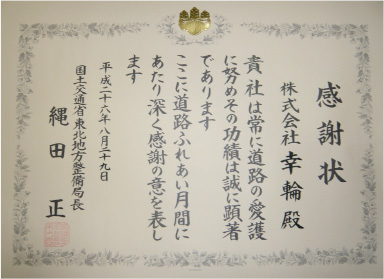 感謝状
株式会社 幸輪殿
貴社は常に道路の愛護
に努めその功績は誠に顕著
であります
ここに道路ふれあい月間に
あたり深く感謝の意を表し
ます
平成二十六年八月二十九日
国土交通省東北地方整備局長
縄田 正